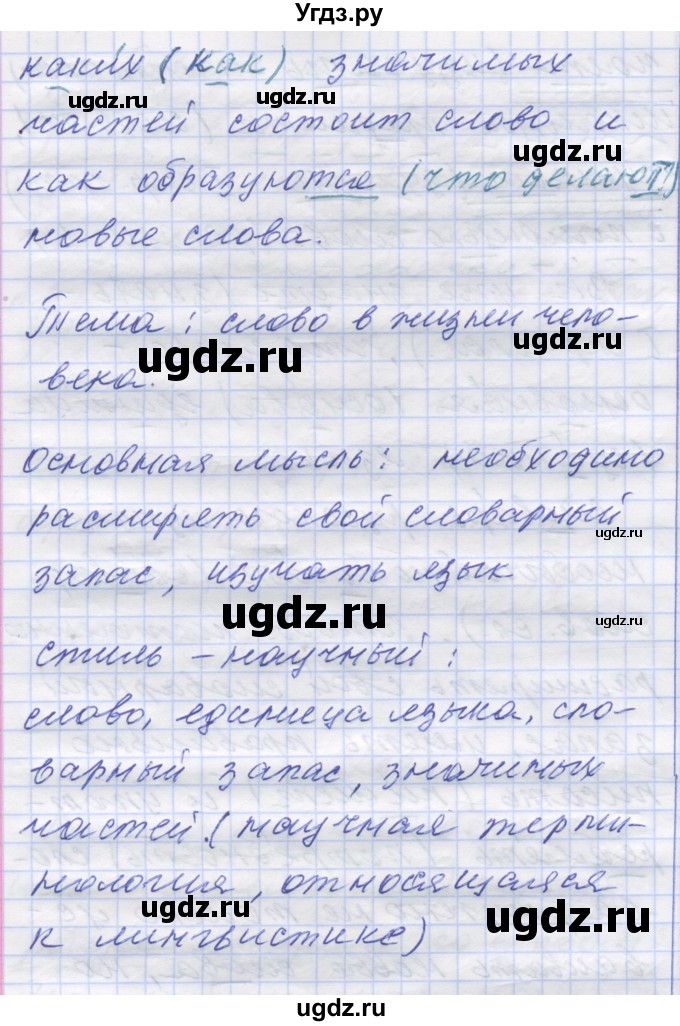 Угдз.ру
каких (как) значимых
ugdz.ru ugdz.ru
частей состоит слово и
ugdz.ru
как образуются (что делают?)
новые слова.
Тема: слово в жизни чело-
ugdz.ru ugdz.ru
века.
основная мысль: необходимо
расширять свой словарный
ugdz.ru
запас, изучать язык
ugdz.ru
стиль – научный:
ugdz.ru
слово, единица языка, сло-
варный запас, значимых
ugdz.ru
частей. (научная терми-
нология, относящаяся
ugdz.ru ugdz.ru
к лингвистике)
ugdz.ru